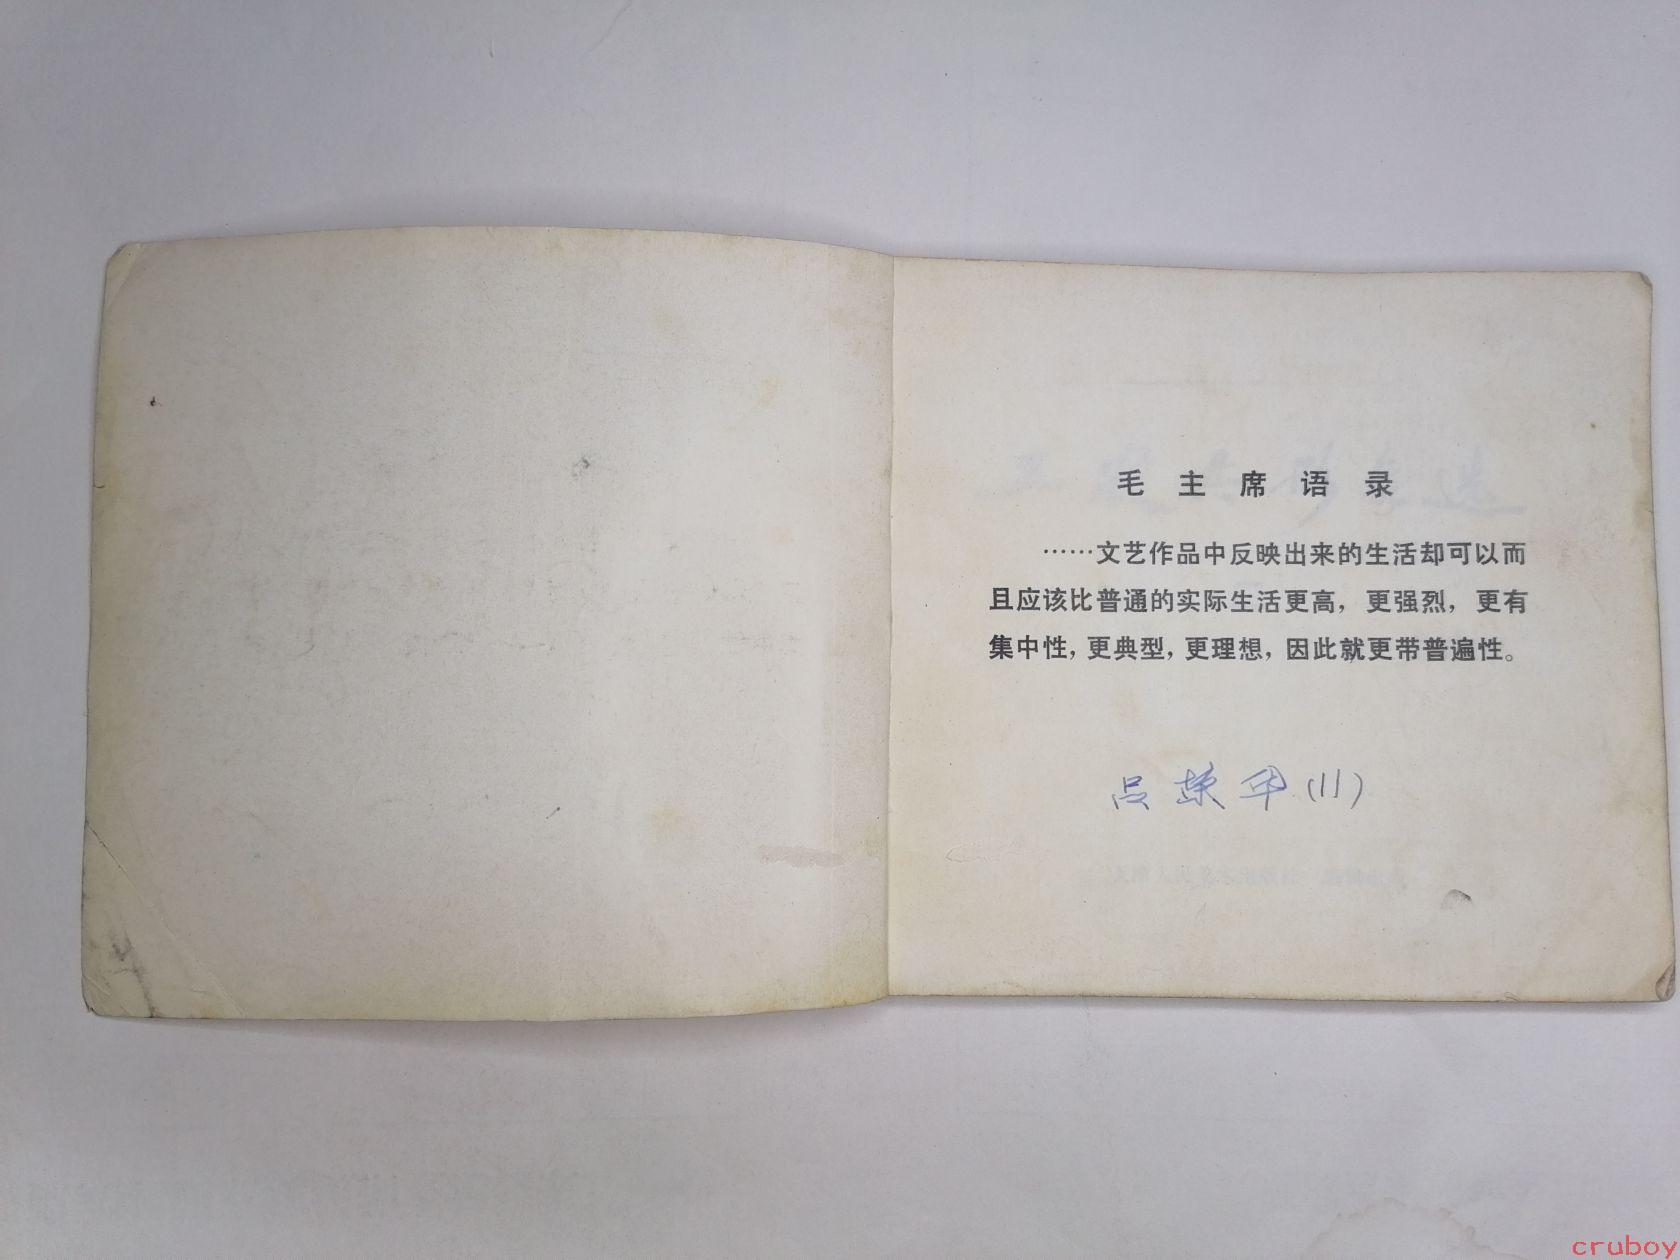 毛主席语录
……文艺作品中反映出来的生活却可以而
且应该比普通的实际生活更高，更强烈，更有
集中性，更典型，更理想，因此就更带普遍性。
吕荣华(11)
cruboy